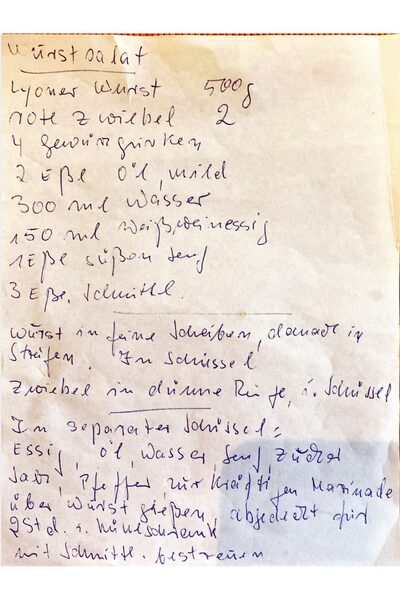 Wurstsalat
Lyoner Wurst 500g
rote Zwiebel 2
4 Gewürzgurken
2 Eßl Öl, mild
300 ml Wasser
150 ml Weißweinessig
1 Eßl süßen Senf
3 Eßl. Schnittl.
Wurst in feine Scheiben, danach in
Streifen. In Schüssel
Zwiebel in dünne Ringe, i. Schüssel
In separater Schüssel:
Essig, Öl, Wasser, Senf, Zucker
Salz, Pfeffer zur kräftigen Marinade
über Wurst gießen, abgedeckt für
2 Std. i. Kühlschrank
mit Schnittl. bestreuen